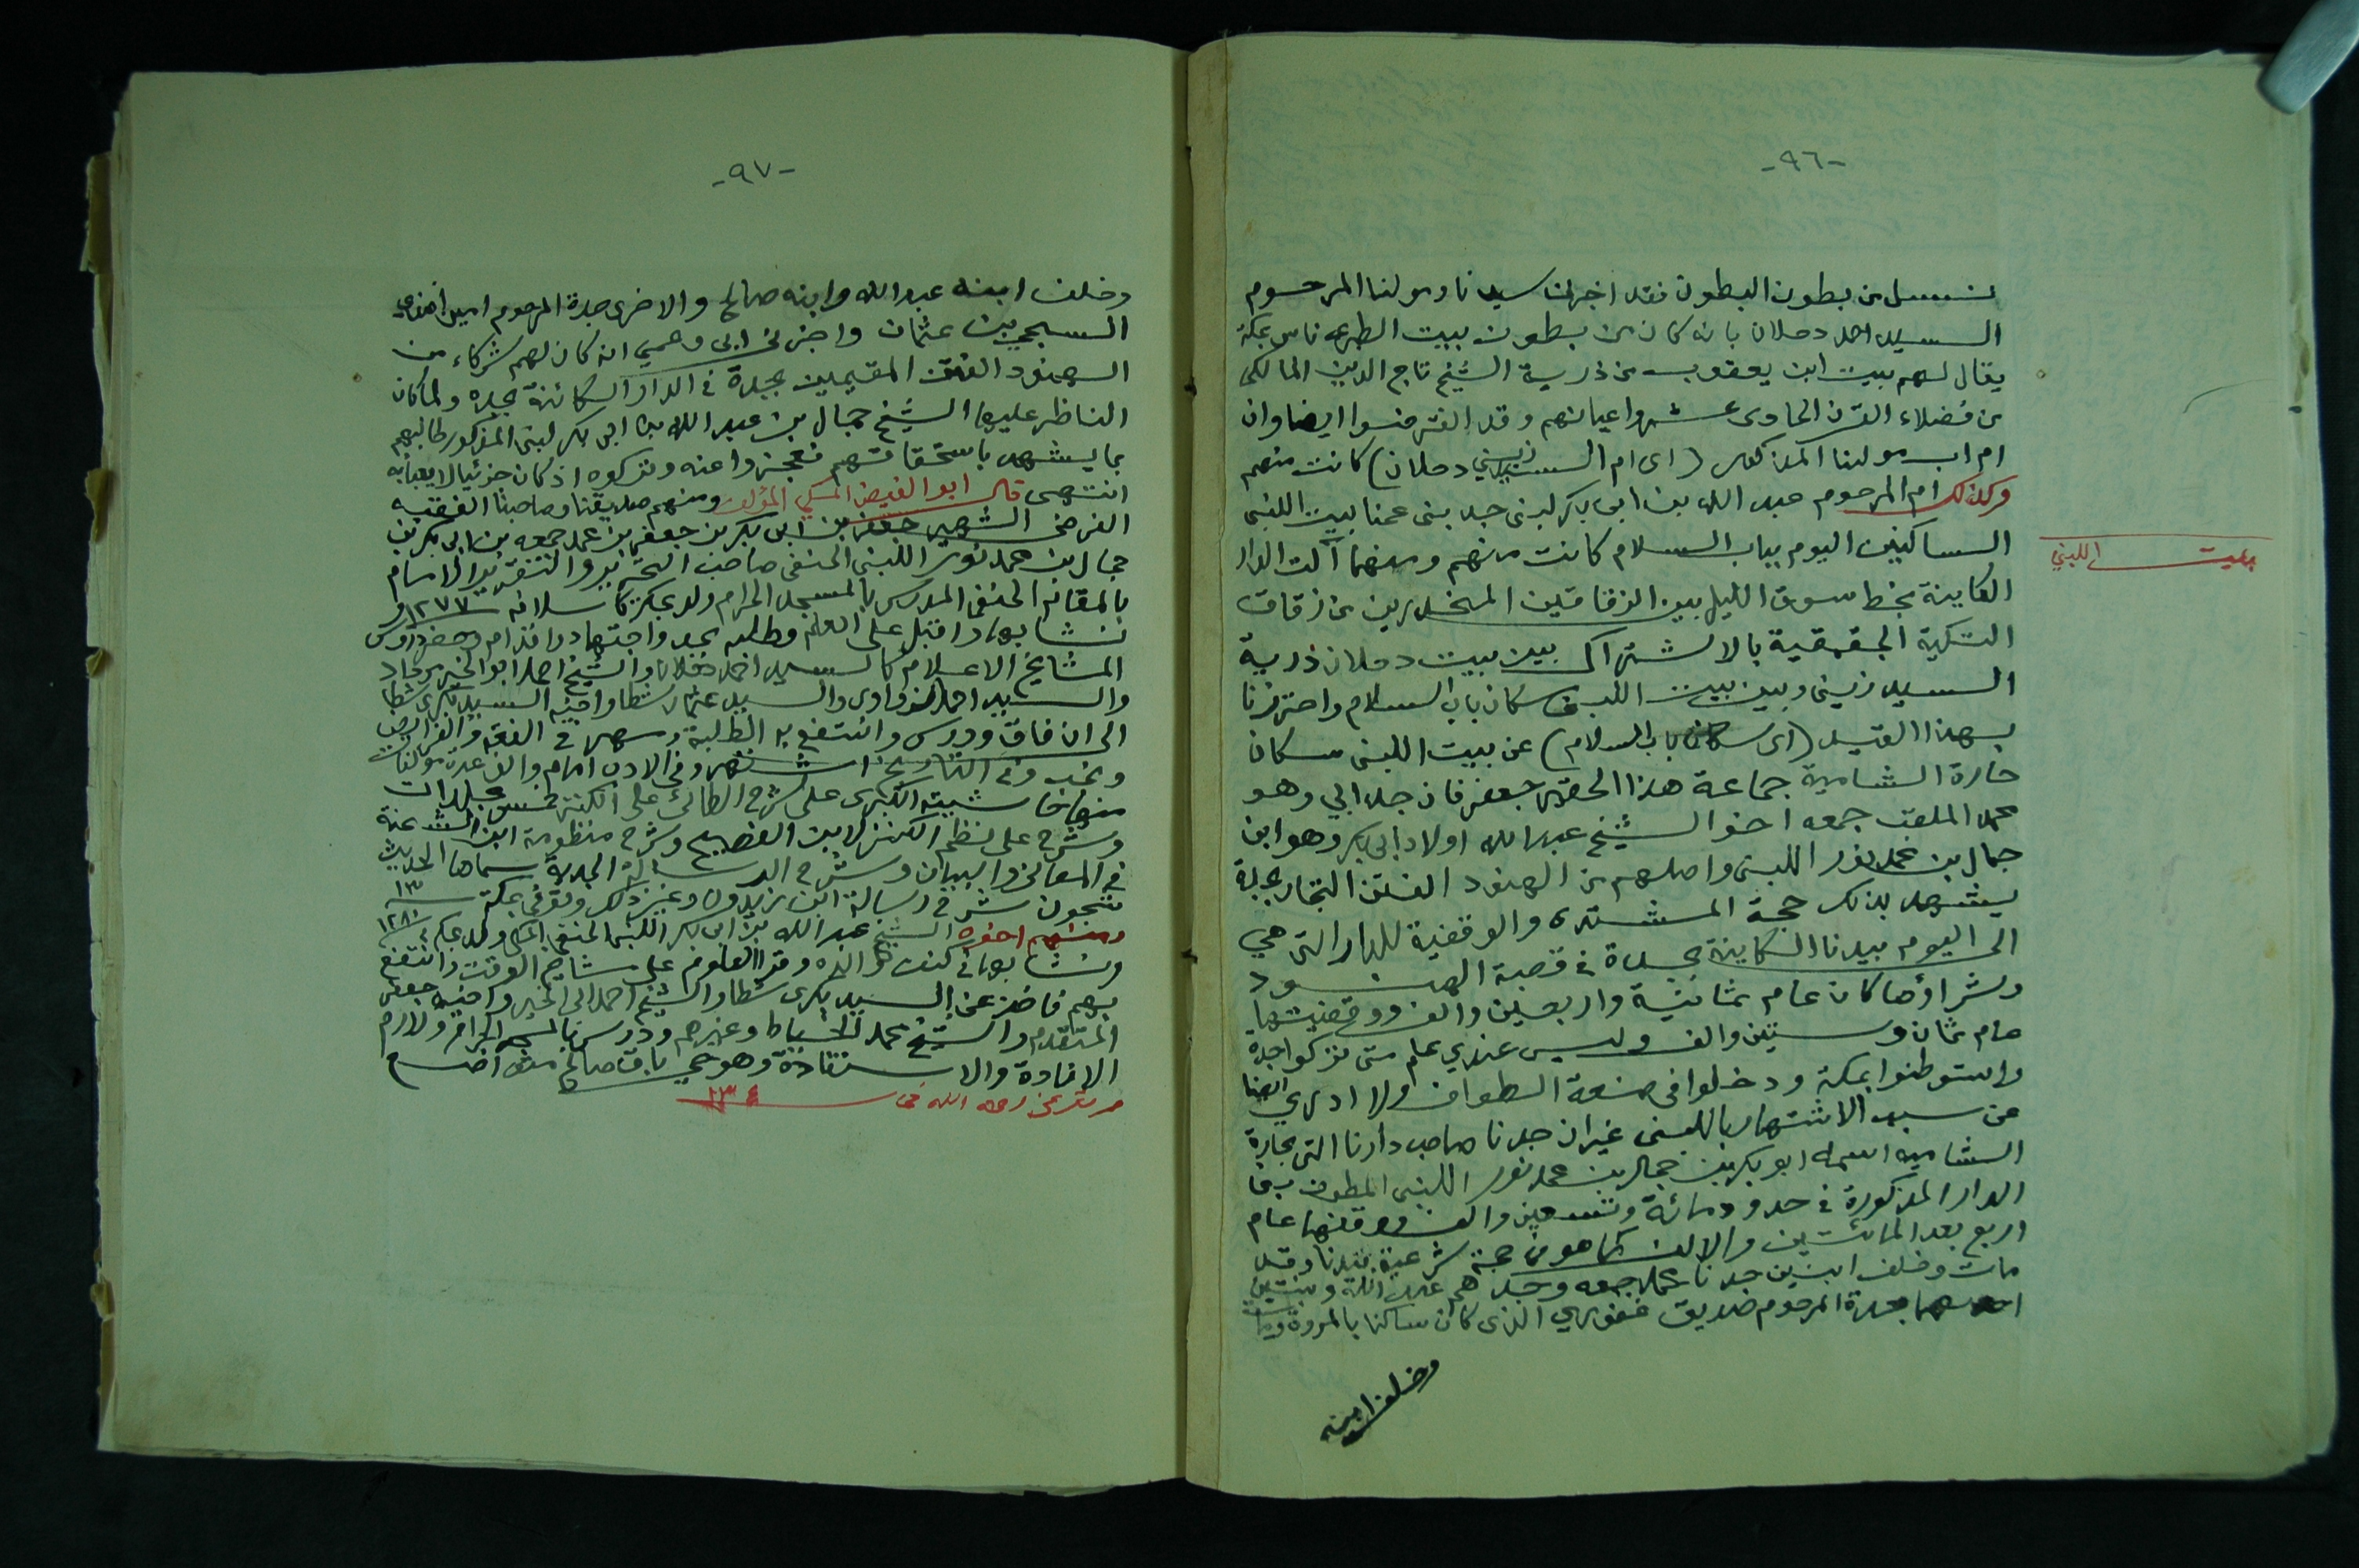 -٩٦-
نسل من بطون البطون فقد اخبرنا سيدنا ومولنا المرحوم
السيد احمد دحلان بانه كان من بطون بيت الطبري ناس بمكة
يقال لهم بيت ابن يعقوب من ذرية الشيخ تاج الدين المالكى
من فضلاء القرن الحادى عشر واعيانهم وقد انقرضوا ايضا وان
ام اب مولنا المذكور (اى ام السيد زيني دحلان) كانت منهم
وكذلك ام المرحوم عبد الله بن ابى بكر لبنى جد بنى عمنا بيت اللبنى
بيت اللبني
الساكنين اليوم بباب السلام كانت منهم ومنهما آلت الدار
الكاينة بخط سوق الليل بين الزقاقين المنحدرين من زقاق
التكية الجقمقية بالاشتراك بين بيت دحلان ذرية
السيد زينى وبين بيت اللبنى سكان باب السلام واحترزنا
بهذا القيد (اى سكان باب السلام) عن بيت اللبنى سكان
حارة الشامية جماعة هذا الحقير جعفر فان جد ابي وهو
محمد الملقب جمعه اخو الشيخ عبد الله اولاد ابى بكر وهو ابن
جمال بن محمد نور اللبنى واصلهم من الهنود الفتن التجار بجدة
يشهد بذلك حجة المشترى والوقفية للدار التى هي
الى اليوم بيدنا الكاينة بجدة فى قصبة الهنود
وشراؤها كان عام ثمانية واربعين والف ووقفيتها
عام ثمان وستين والف وليس عندي علم متى تركوا جدة
واستوطنوا بمكة ودخلوا فى صنعة الطواف ولا ادري ايضا
عن سبب الاشتهار باللبنى غير ان جدنا صاحب دارنا التى بحارة
الشاميه اسمه ابو بكر بن جمال بن محمد نور اللبنى المطوف بنى
الدار المذكورة فى حدود مائة وتسعين والف ووقفها عام
اربع بعد المائتين والالف كما هو فى حجة شرعية بيدنا وقد
مات وخلف ابنين جدنا محمد جمعه وجدهم عبد الله وبنتين
احدهما جدة المرحوم صديق غفوري الذى كان ساكنا بالمروة ومات
وخلف ابنه
-٩٧-
وخلف ابنه عبد الله وابنه صالح والاخرى جدة المرحوم امين افندى
السبحي بيت عثمان واخبرنى ابى وعمي انه كان لهم شركاء من
الهنود الفتن المقيمين بجدة فى الدار الكائنة بجده ولما كان
الناظر عليها الشيخ جمال بن عبد الله بن ابى بكر لبنى المذكور طالبهم
بما يشهد باستحقاقهم فعجزوا عنه وتركوه اذ كان جزئيا لا يعبأ به
انتهى قال ابو الفيض المكي المؤلف ومنهم صديقنا وصاحبنا الفقيه
الفرضى الشهير جعفر بن ابى بكر بن جعفر بن محمد جمعه بن ابى بكر بن
جمال بن محمد نور اللبنى الحنفى صاحب التحرير والتقرير الامام
بالمقام الحنفى المدرس بالمسجد الحرام ولد بمكة كاسلافه ١٢٧٧ و
نشا بها واقبل على العلم وطلبه بجد واجتهاد واقدام وحضر دروس
المشايخ الاعلام كالسيد احمد دحلان والشيخ احمد ابو الخير مرداد
والسيد احمد الزواوى والسيد عثمان شطا واخيه السيد بكرى شطا
الى ان فاق ودرس وانتفع به الطلبة ومهر فى الفقه والفرائض
ونجب وفى التاريخ اشتهر وفى الادب امام والف عدة مؤلفات
منها حاشيته الكبرى على شرح الطائى على الكنز خمس مجلدات
وشرح على نظم الكنز لابن الفصيح وشرح منظومة ابن الشحنة
فى المعانى والبيان وشرح الرسالة الجدية سماها الحديث
شجون شرح رسالة ابن زيدون وغير ذلك وتوفى بمكة ١٣
ومنهم اخوه الشيخ عبد الله بن ابى بكر اللبنى الحنفى المكي ولد بمكة ١٢٨١
ونشا بها فى كنف والده وقرا العلوم على مشايخ الوقت وانتفع
بهم فاخذ عن السيد بكرى شطا والشيخ احمد ابى الخير واخيه جعفر
المتقدم والشيخ محمد الخياط وغيرهم ودرس بالمسجد الحرام ولازم
الافادة والاستفادة وهو حي باق صالح
توفى رحمه الله فى